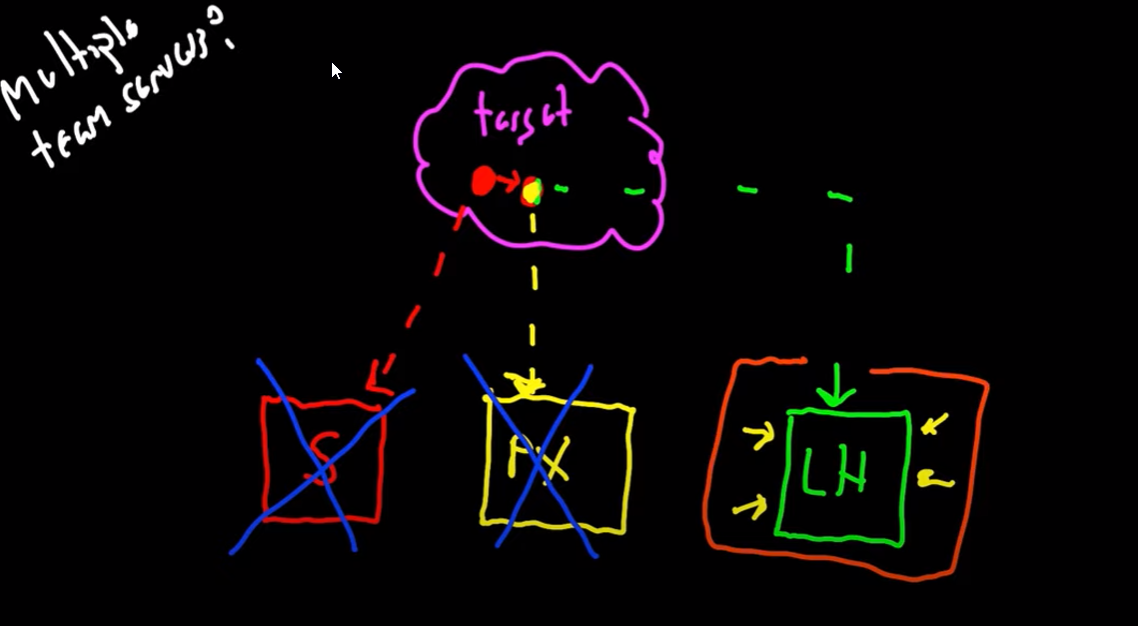 Multiple
team servers?
target
S
PX
LH